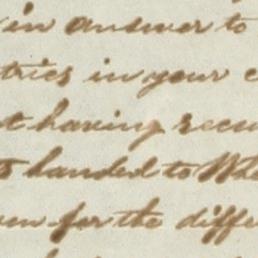 in answer to
tries in your c
t having recei
s handed to Whe
en for the diffe